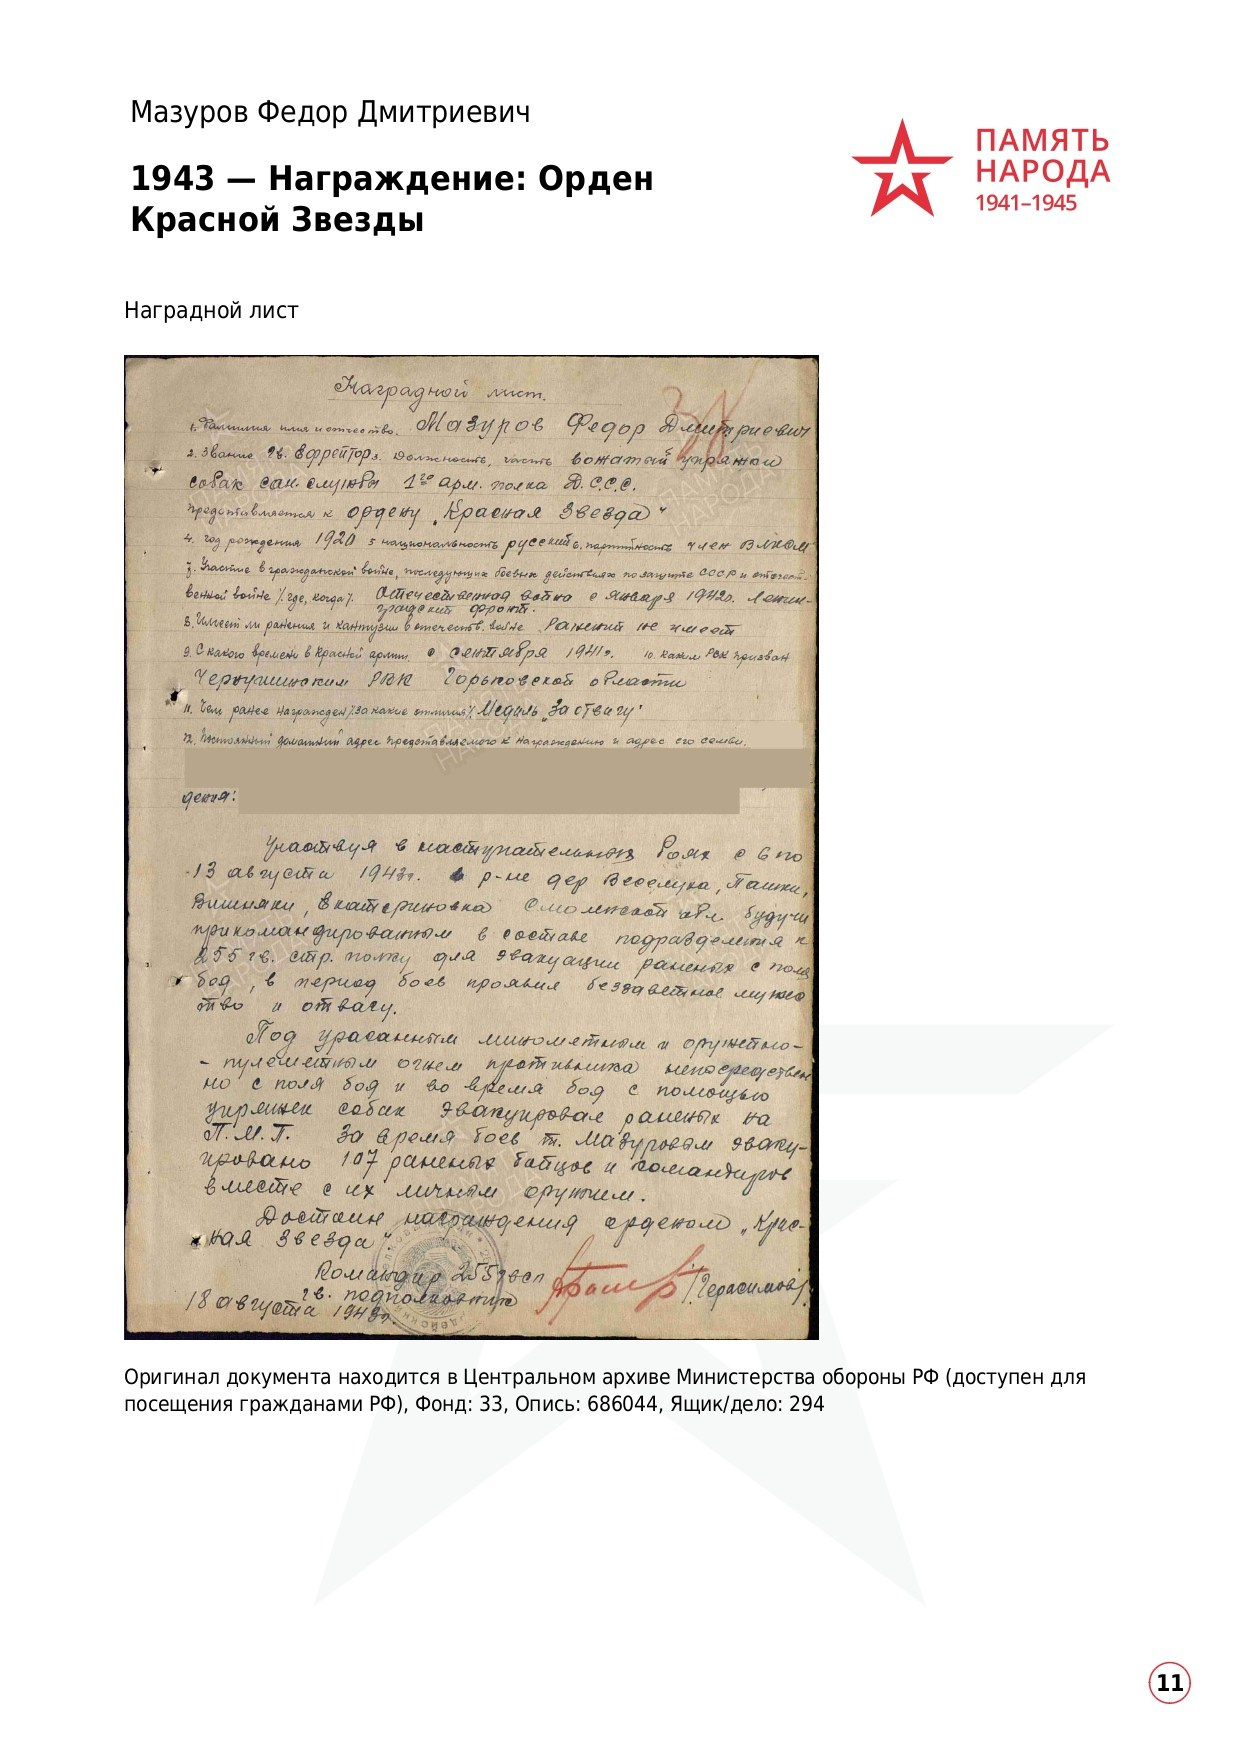 Мазуров Федор Дмитриевич
1943 — Награждение: Орден
Красной Звезды
ПАМЯТЬ
НАРОДА
1941–1945
Наградной лист
Наградной лист.
1. Фамилия имя и отчество. Мазуров Федор Дмитриевич
2. Звание гв. Ефрейтор 3. Должность, часть вожатый упряжки
собак сан. службы 1го арм. полка Д.С.С.С.
представляется к ордену „Красная Звезда"
4. год рождения 1920 5 национальность русский 6. партийность член ВЛКСМ
7. Участие в гражданской войне, последующих боевых действиях по защите СССР и отечест-
венной войне /где, когда/. Отечественная война с января 1942г. Ленин-
градский фронт.
8. Имеет ли ранения и контузии в отечеств. войне Ранений не имеет
9. С какого времени в Красной армии с сентября 1941г. 10. каким РВК призван
РВК Горьковской области
11. Чем ранее награжден /за какие отличия/ Медаль „За отвагу"
12. Постоянный домашний адрес представляемого к награждению и адрес его семьи.
дения:
Участвуя в наступательных боях с 6 по
13 августа 1943г. в р-не дер Веселуха, Пашки,
Вишняки, Екатериновка Смоленской обл. будучи
прикомандированным в составе подразделения к
255 гв. стр. полку для эвакуации раненых с поля
боя, в период боев проявил беззаветное мужес
тво и отвагу.
Под ураганным минометным и оружейно-
- пулеметным огнем противника непосредствен
но с поля боя и во время боя с помощью
упряжек собак эвакуировал раненых на
П.М.П. За время боев т. Мазуровым эваку-
ировано 107 раненых бойцов и командиров
вместе с их личным оружием.
Достоин награждения орденом „Крас-
ная Звезда".
Командир 255 гвсп
гв. подполковник /Герасимов/
18 августа 1943г.
Оригинал документа находится в Центральном архиве Министерства обороны РФ (доступен для
посещения гражданами РФ), Фонд: 33, Опись: 686044, Ящик/дело: 294
11